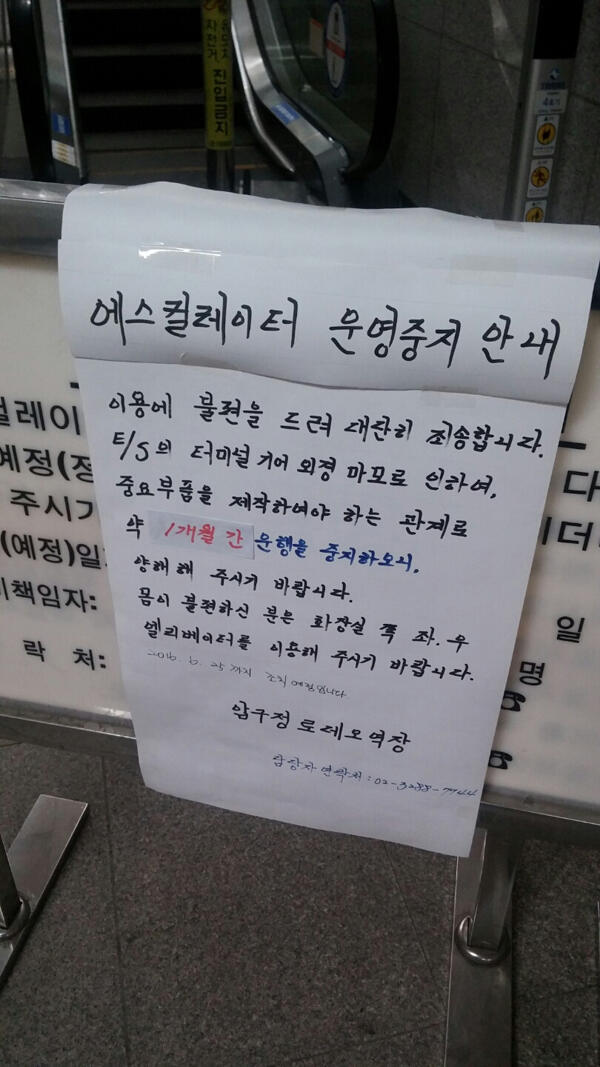 자전거
진입금지
에스컬레이터 운영중지 안내
이용에 불편을 드려 대단히 죄송합니다.
E/S의 터미널 기어 외경 마모로 인하여,
중요부품을 제작하여야 하는 관계로
약 1개월 간 운행을 중지하오니,
양해해 주시기 바랍니다.
몸이 불편하신 분은 화장실 쪽 좌.우
엘리베이터를 이용해 주시기 바랍니다.
2016. 6. 25까지 조치 예정입니다
압구정 로데오역장
담당자 연락처 : 02-3288-7744
컬레이
예정(정
주시기
(예정)일
책임자:
락 처:
다
일
명